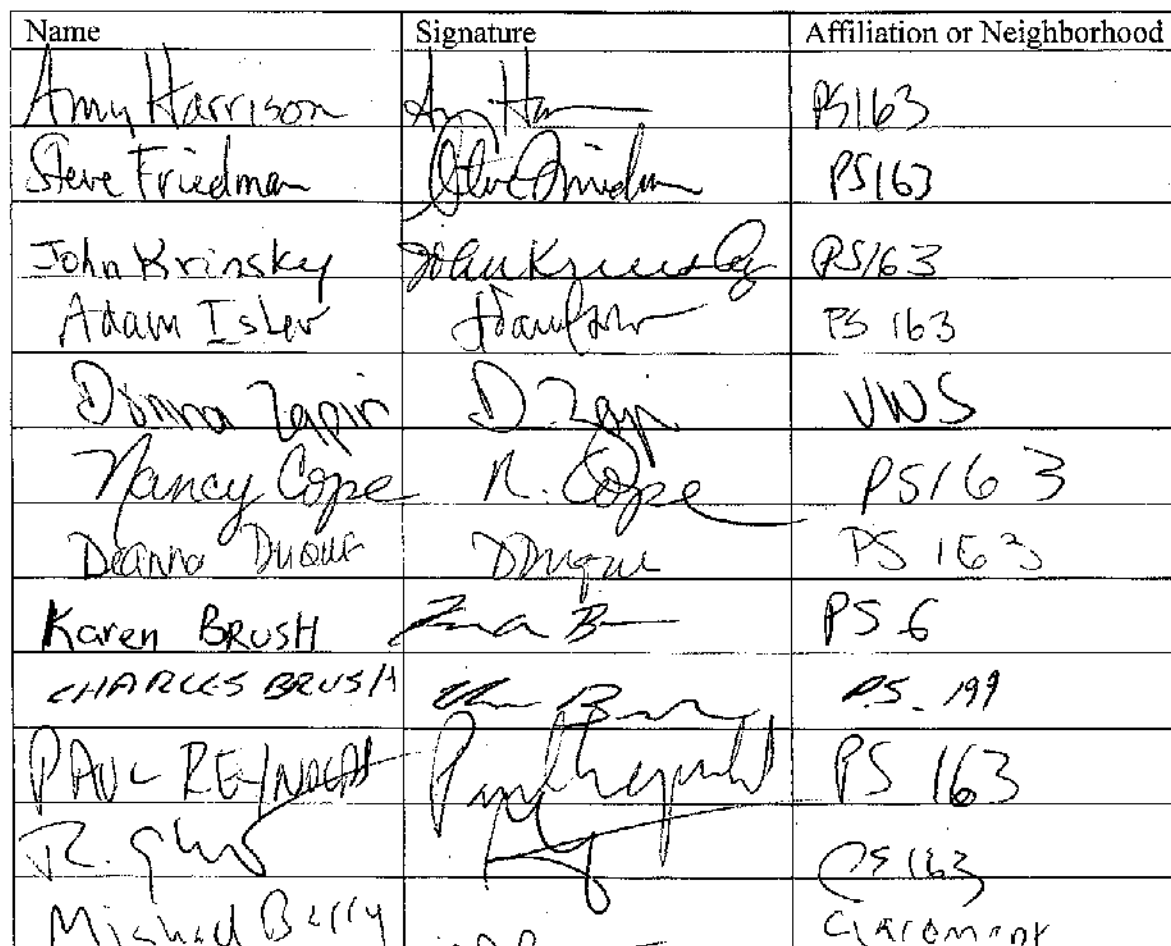 Name Signature Affiliation or Neighborhood
Amy Harrison Amy Ha PS163
Steve Friedman Steve Friedman PS163
John Krinsky John Krinsky PS163
Adam Isler PS 163
Donna Zapin D. Zapin VNS
Nancy Cope N. Cope PS163
Deanna Duque DDuque PS 163
Karen BRUSH PS 6
CHARLES BRUSH P.S. 199
PAUL REYNOLDS Paul Reynolds PS 163
R. PS 163
Michael Barry Claremont